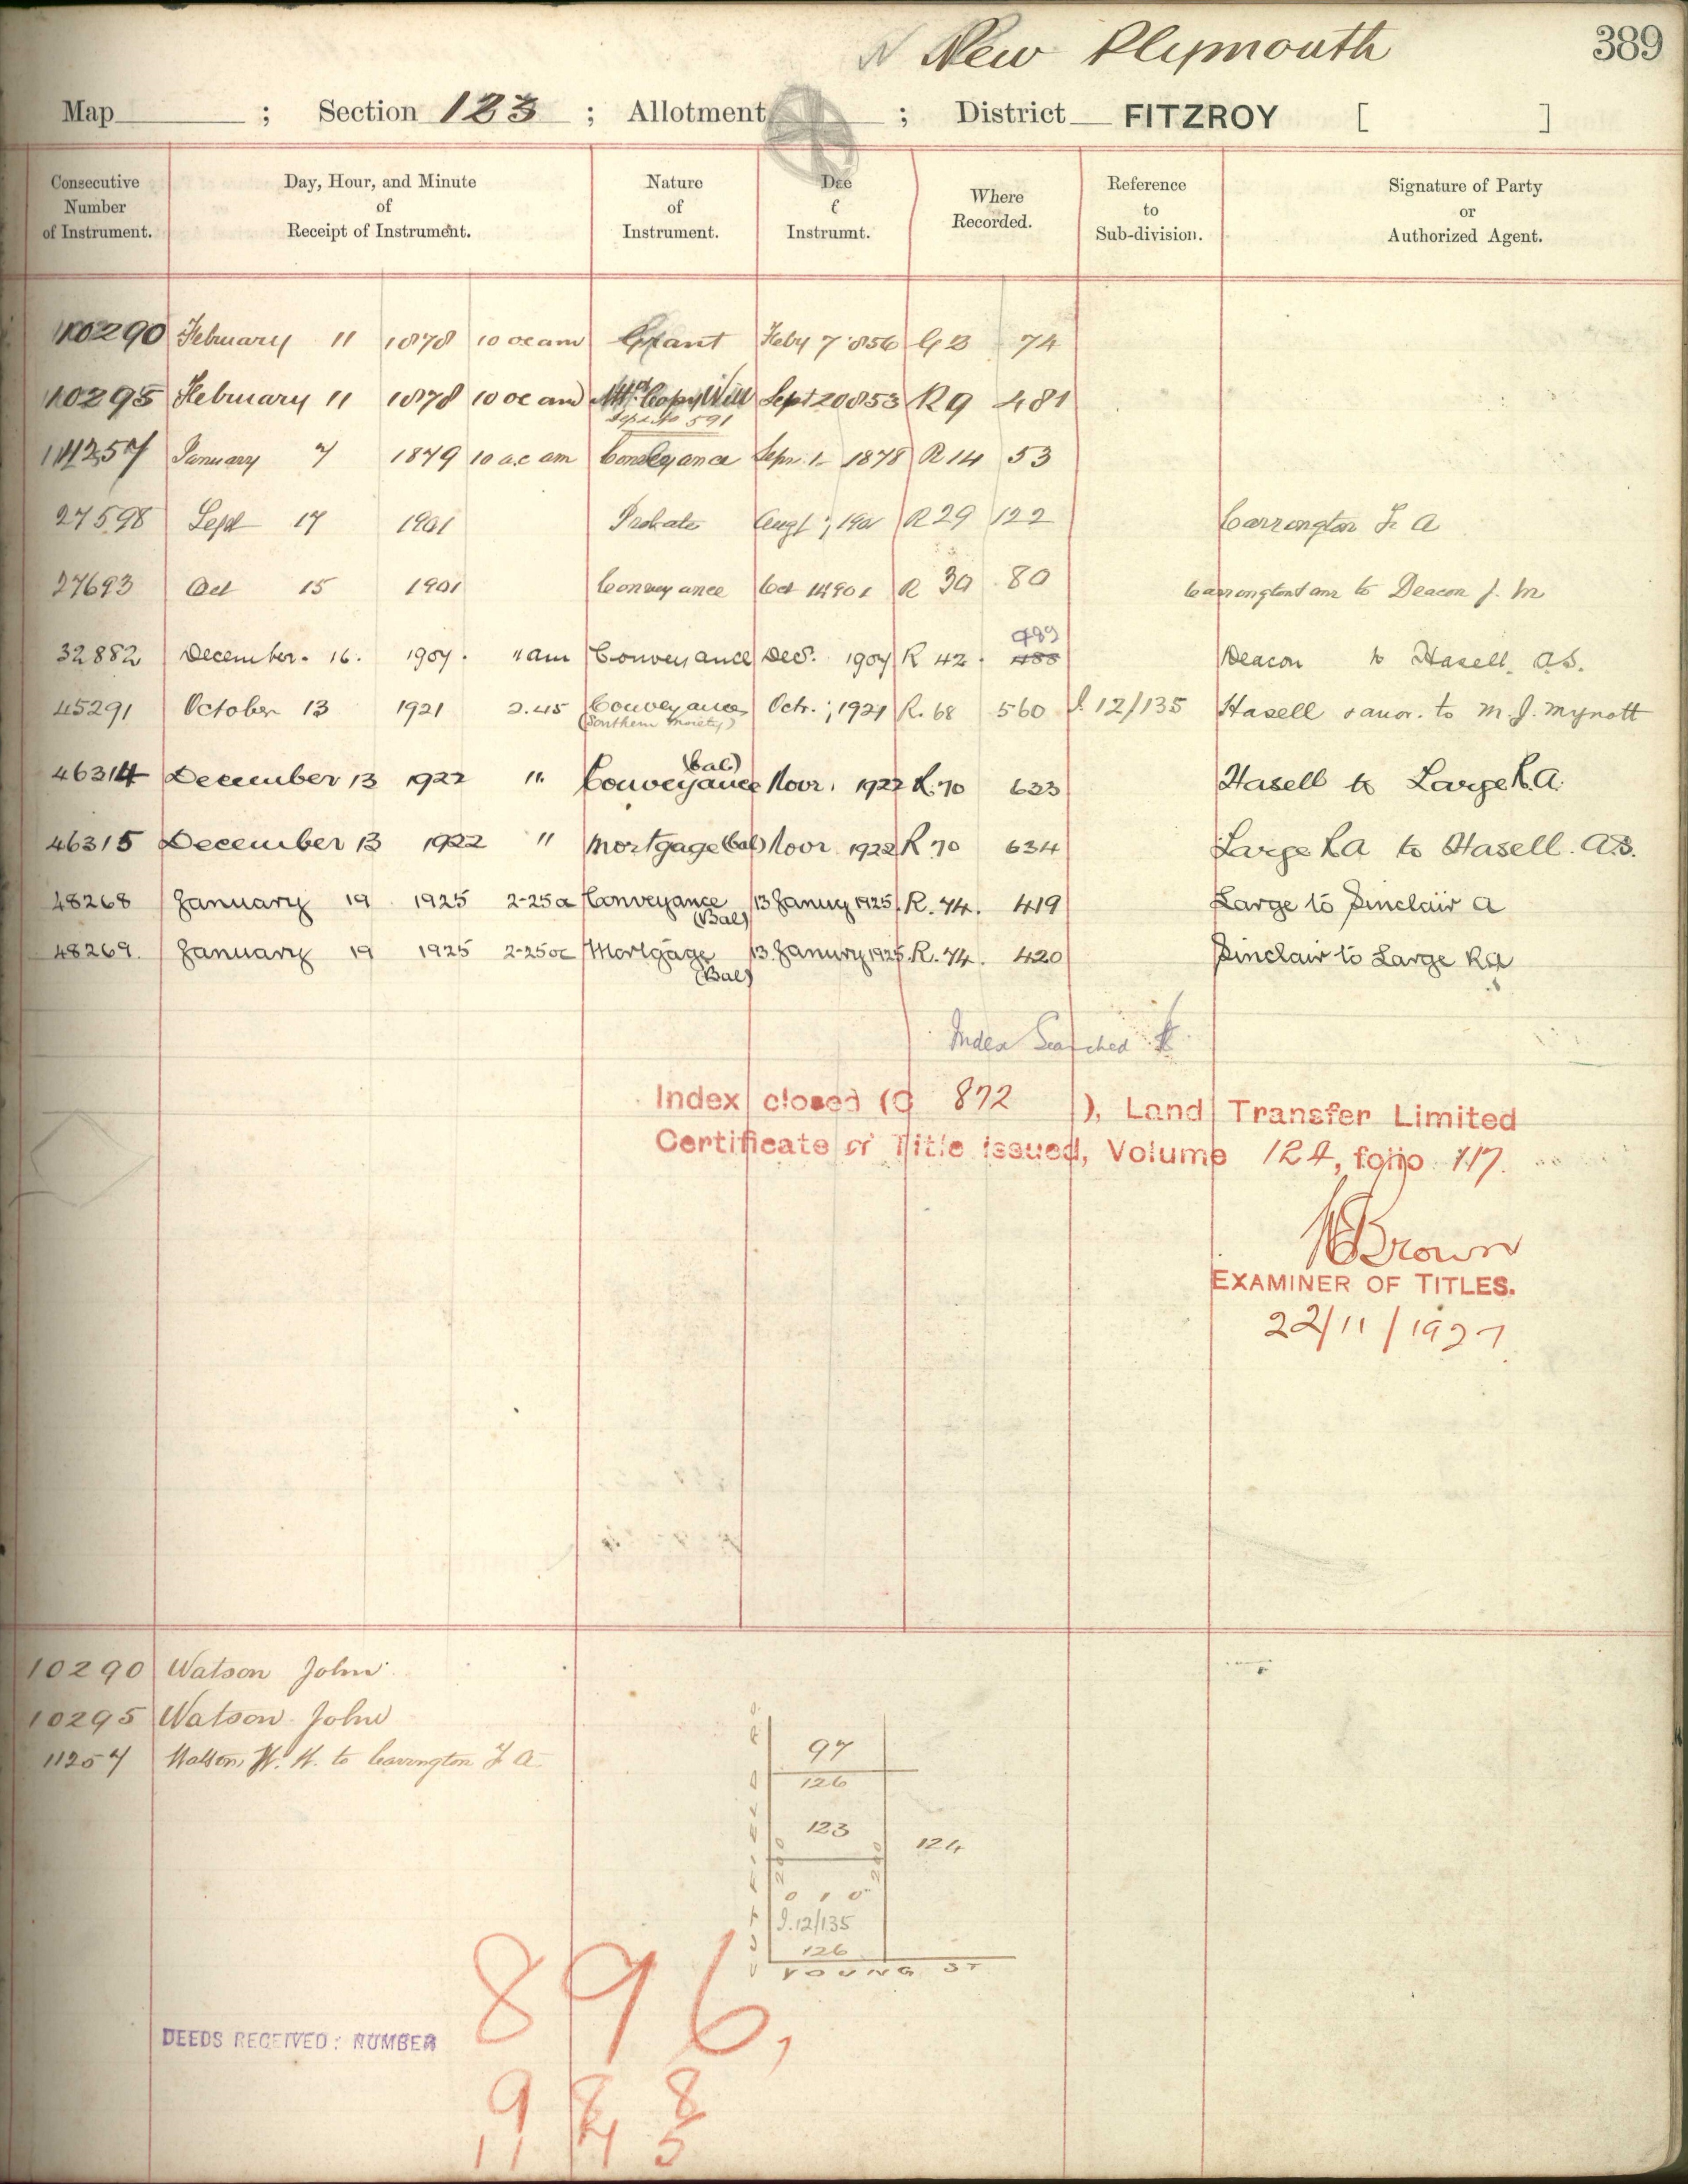 New Plymouth
389
Map ; Section 123 ; Allotment ; District FITZROY [ ]
Consecutive Number of Instrument.
Day, Hour, and Minute of Receipt of Instrument.
Nature of Instrument.
Instrumnt.
Where Recorded.
Reference to Sub-division.
Signature of Party or Authorized Agent.
10290 February 11 1878 10 oc am Grant Feby 7 1856 G B 74
10295 February 11 1878 10 oc am Copy Will Sept 20 1853 R 9 481
11257 January 7 1879 10 a.c am Conveyance Sepr. 1878 R 14 53
27598 Sept 17 1901 Probate Augt ; 1901 R 29 122 Carrington F. A
27693 Oct 15 1901 Conveyance Oct 14 1901 R 30 80 to Deacon J. M
489
32882 December. 16. 1907. 11 am Conveyance Dec. 1907 R 42. 488 Deacon to Hasell. A.S.
45291 October 13 1921 2.45 Conveyance Octr. ; 1921 R. 68 560 I. 12/135 Hasell & anor. to M. J. Mynott
(Southern Moiety)
(bal)
46314 December 13 1922 " Conveyance Novr. 1922 R. 70 633 Hasell to Large R.A.
46315 December 13 1922 " Mortgage (bal) Novr 1922 R 70 634 Large R A to Hasell. A.S.
48268 January 19 1925 2-25 Conveyance 13 January 1925. R. 74. 419 Large to Sinclair A
(Bal)
48269. January 19 1925 2-25 oc Mortgage 13 January 1925. R. 74. 420 Sinclair to Large R A
(Bal)
Index Searched
Index closed (C 872 ), Land Transfer Limited
Certificate of Title issued, Volume 124, folio 117.
Brown
EXAMINER OF TITLES.
22/11/1927
10290 Watson John
10295 Watson John
11257 Watson, W. H. to Carrington F A
97
126
123
124
I.12/135
126
YOUNG ST
896,
DEEDS RECEIVED: NUMBER
9 8 8